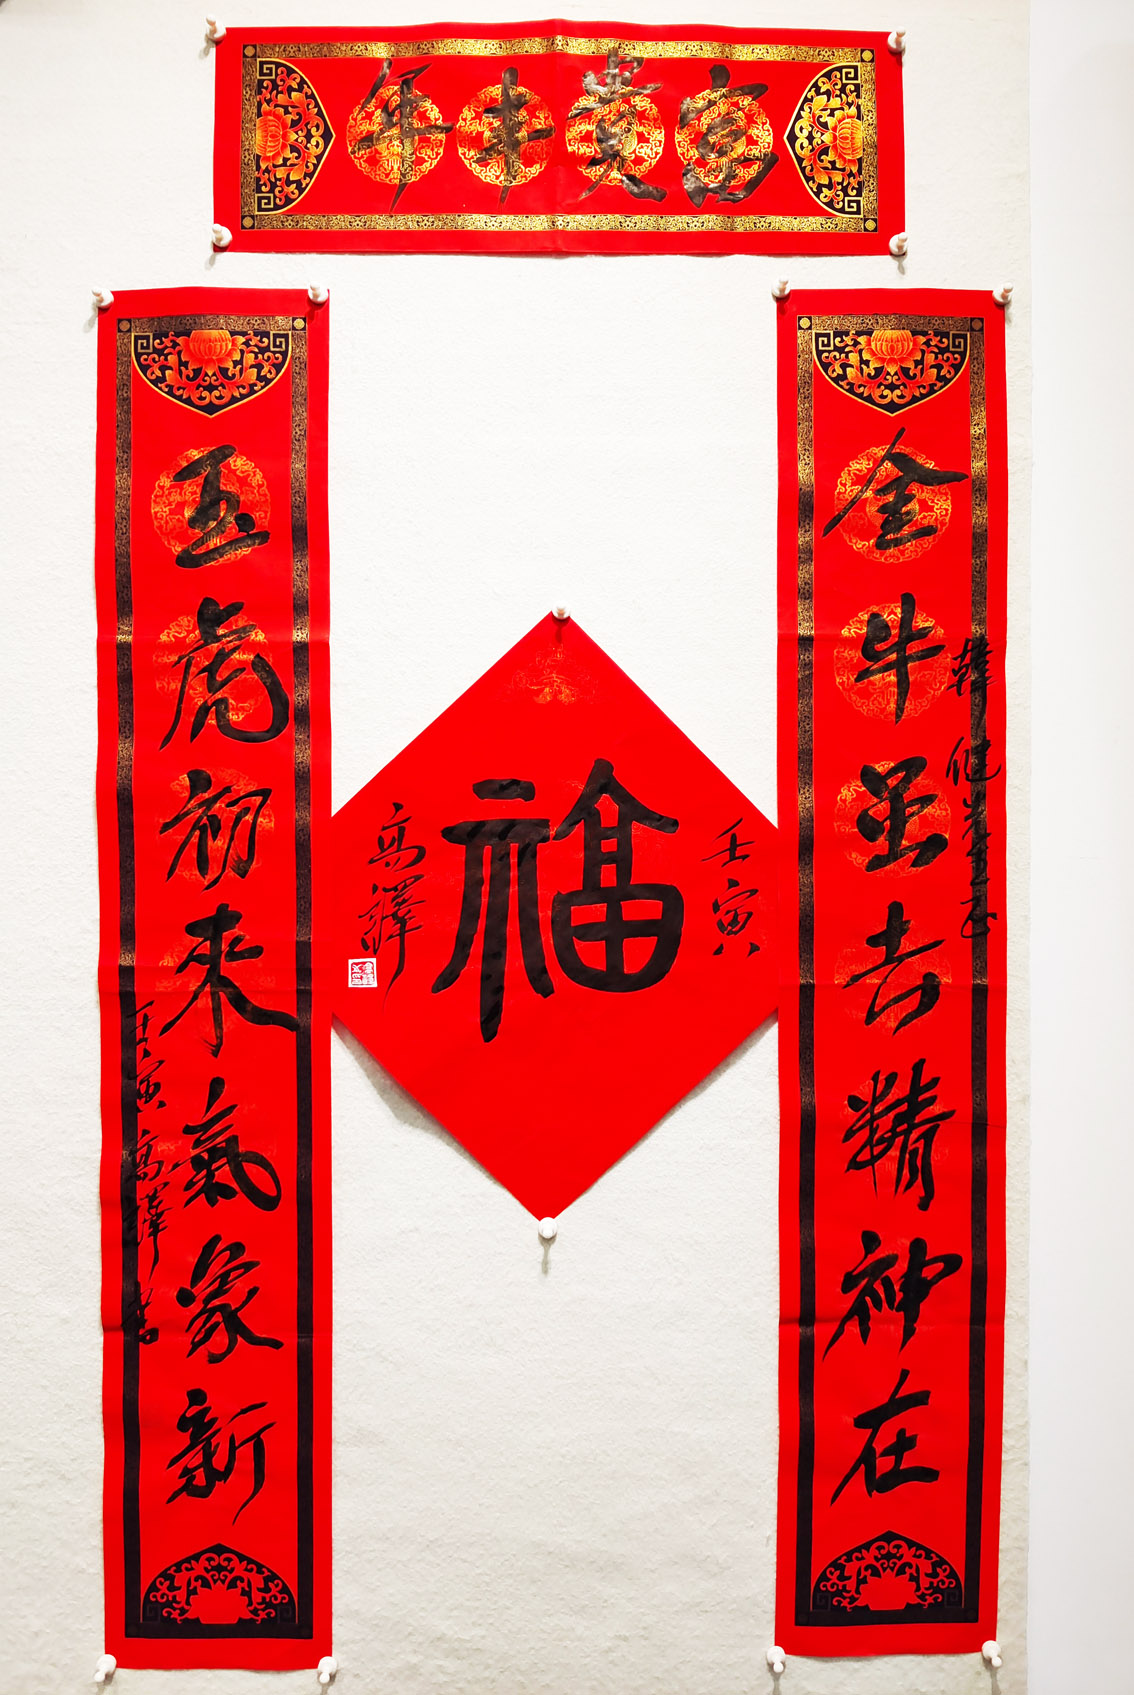 富貴丰年
金牛虽去精神在
韓健
玉虎初來氣象新
壬寅高譯書
壬寅
福
高譯